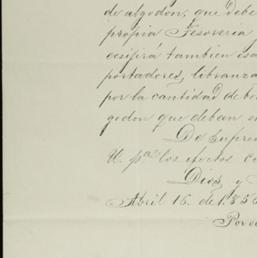 de algodon, que debe
propia Tesoreria
ecsijirá tambien esa
portadores, libranza
por la cantidad de
godon que deban
De Supre
U. pa. los efectos co
Dios y
Abril 16. de 185
Por